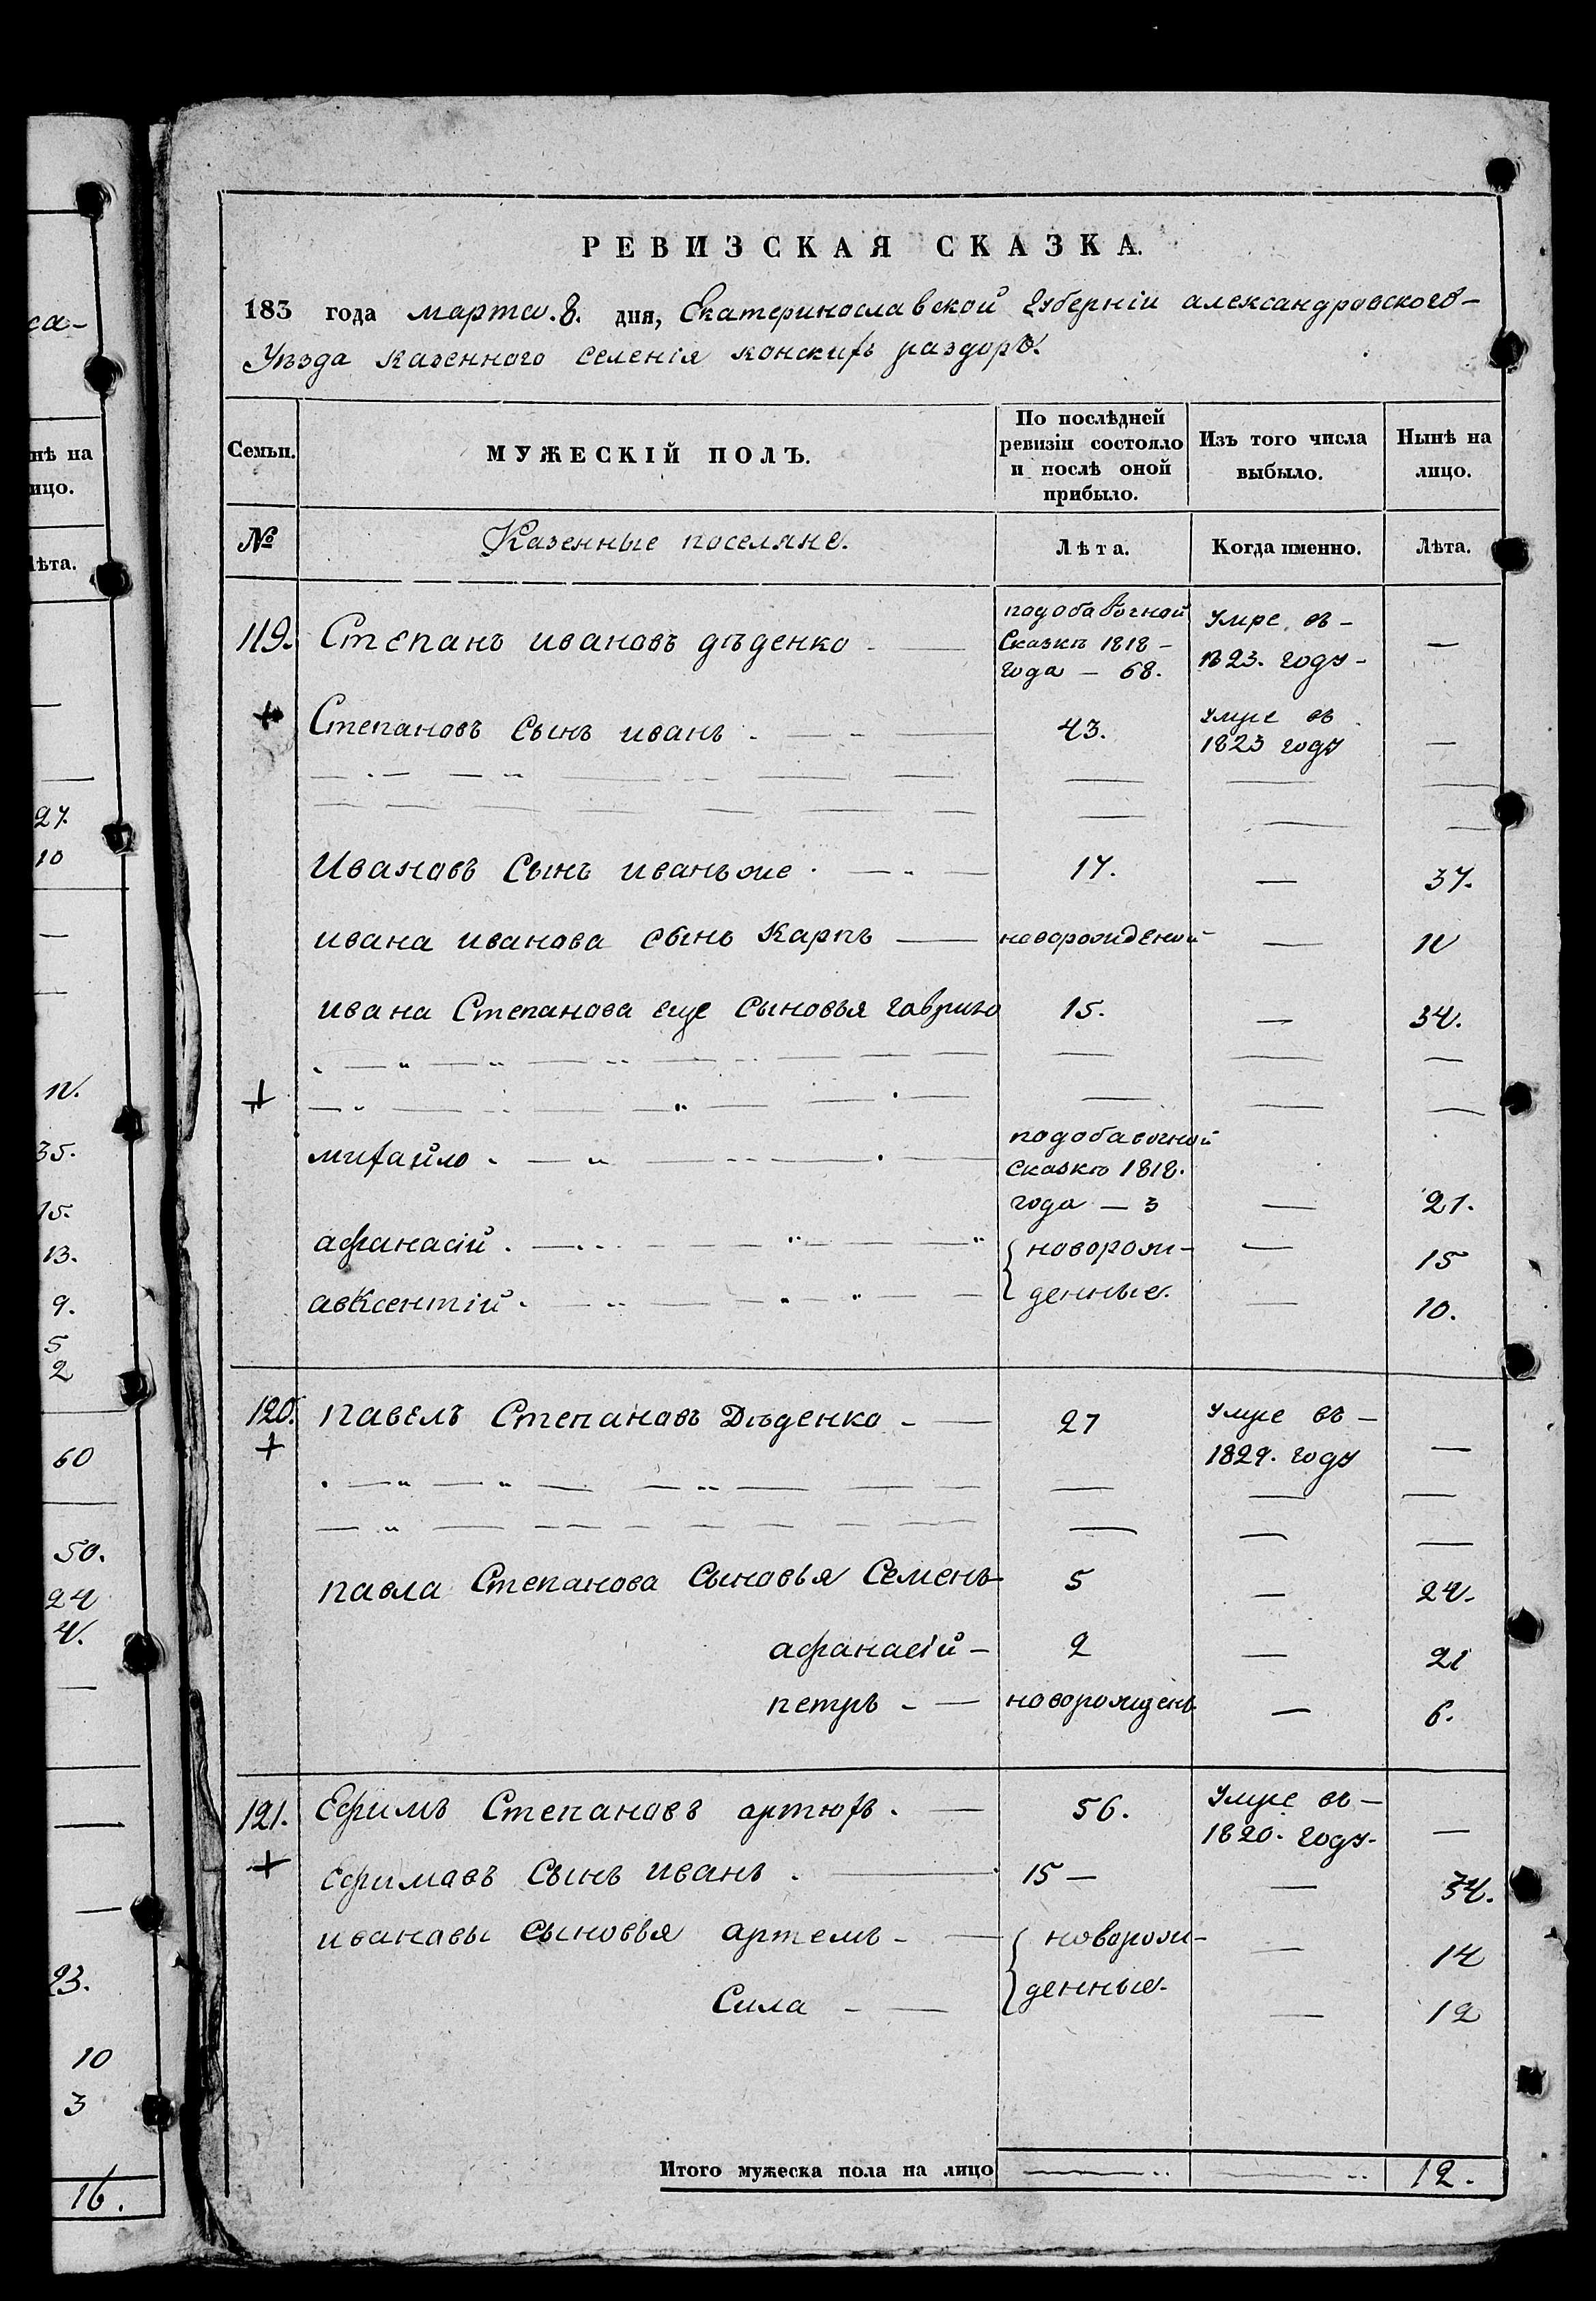 са-
нѣ на
ицо.
лѣта.
27.
10
12.
35.
15.
13.
9.
5
2
60
50.
24
4.
23.
10
3
16.
РЕВИЗСКАЯ СКАЗКА.
183 года марта. 8. дня, Екатеринославской Губерніи александровского-
Уѣзда казенного селенія конскихъ раздоръ.
Семьи. МУЖЕСКІЙ ПОЛЪ. По послѣдней ревизіи состояло и послѣ оной прибыло. Изъ того числа выбыло. Нынѣ на лицо.
№ Казенные поселяне. Лѣта. Когда именно. Лѣта.
119. Степанъ ивановъ дѣденко - — подобавочной Сказкѣ 1818 - года — 68. Умре въ - 1823. году - —
+ Степановъ Сынъ иванъ . — 43. Умре въ 1823 году —
Ивановъ Сынъ иванъ же . — 17. — 37.
ивана иванова сынъ Карпъ — новорожденой — 12
ивана Степанова еще сыновья гаврило 15. — 34.
+
михайло . — подобавочной сказкѣ 1818. года — 3 — 21.
афанасій . — { новорож- — 15
авксентій . — денные. — 10.
120. павелъ Степановъ Дѣденко - — 27 Умре въ — 1829. году —
+
павла Степанова Сыновья Семенъ- 5 — 24.
афанасій — 2 — 21
петръ - — новорожденъ — 6.
121. Ефимъ Степановъ артюхъ . — 56. Умре въ — 1820. году- —
+ Ефимовъ Сынъ иванъ . — 15 — — 34.
ивановы сыновья артемъ - — { новорож- — 14
Сила - — денные. — 12
Итого мужеска пола на лицо — — 12.